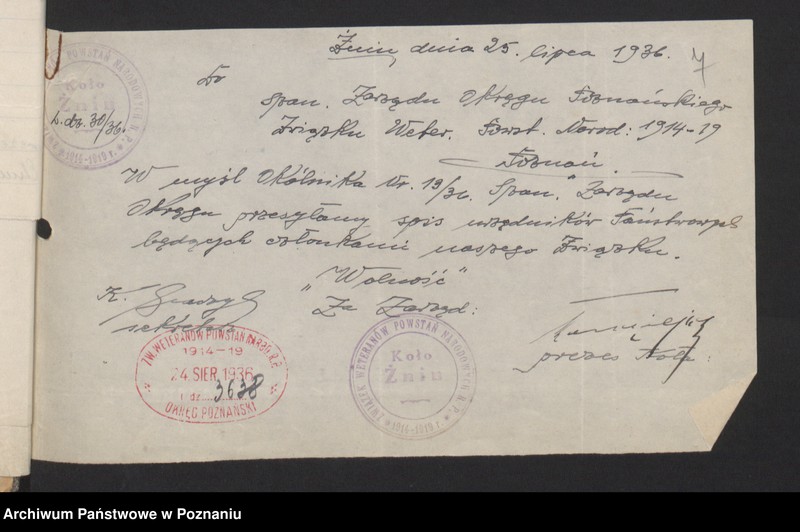 Żnin, dnia 25. lipca 1936.
7
Do
Span. Zarządu Okręgu Poznańskiego
Związku Weter. Powst. Narod: 1914-19
Poznań.
W myśl Okólnika Nr. 19/36. Span. Zarządu
Okręgu przesyłamy spis urzędników Państwowych
będących członkami naszego Związku.
"Wolność"
Za Zarząd:
K.
sekretarz
prezes Koła:
POWSTAŃ NARODOWYCH R.P.
Koło
Żnin
L.dz. 30/36.
1914-1919 r.
ZW. WETERANÓW POWSTAŃ NAROD. R.P.
1914-19
24. SIER. 1936
L. dz. 3638
OKRĘG POZNAŃSKI
ZWIĄZEK WETERANÓW POWSTAŃ NARODOWYCH R.P.
Koło
Żnin
1914-1919 r.
Archiwum Państwowe w Poznaniu